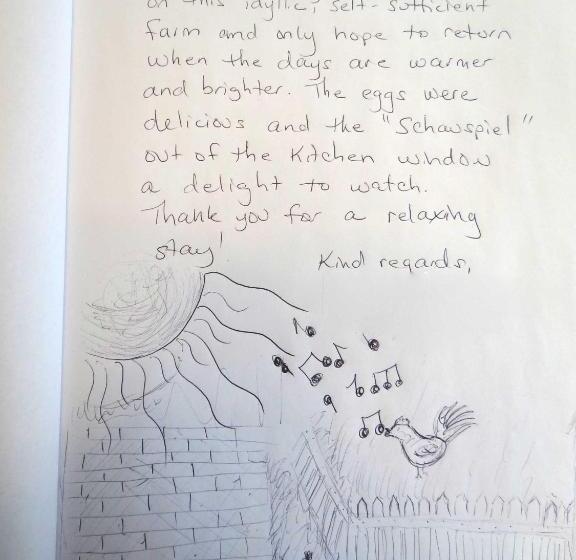 on this idyllic, self-sufficient
farm and only hope to return
when the days are warmer
and brighter. The eggs were
delicious and the "Schauspiel"
out of the Kitchen window
a delight to watch.
Thank you for a relaxing
stay!
Kind regards,